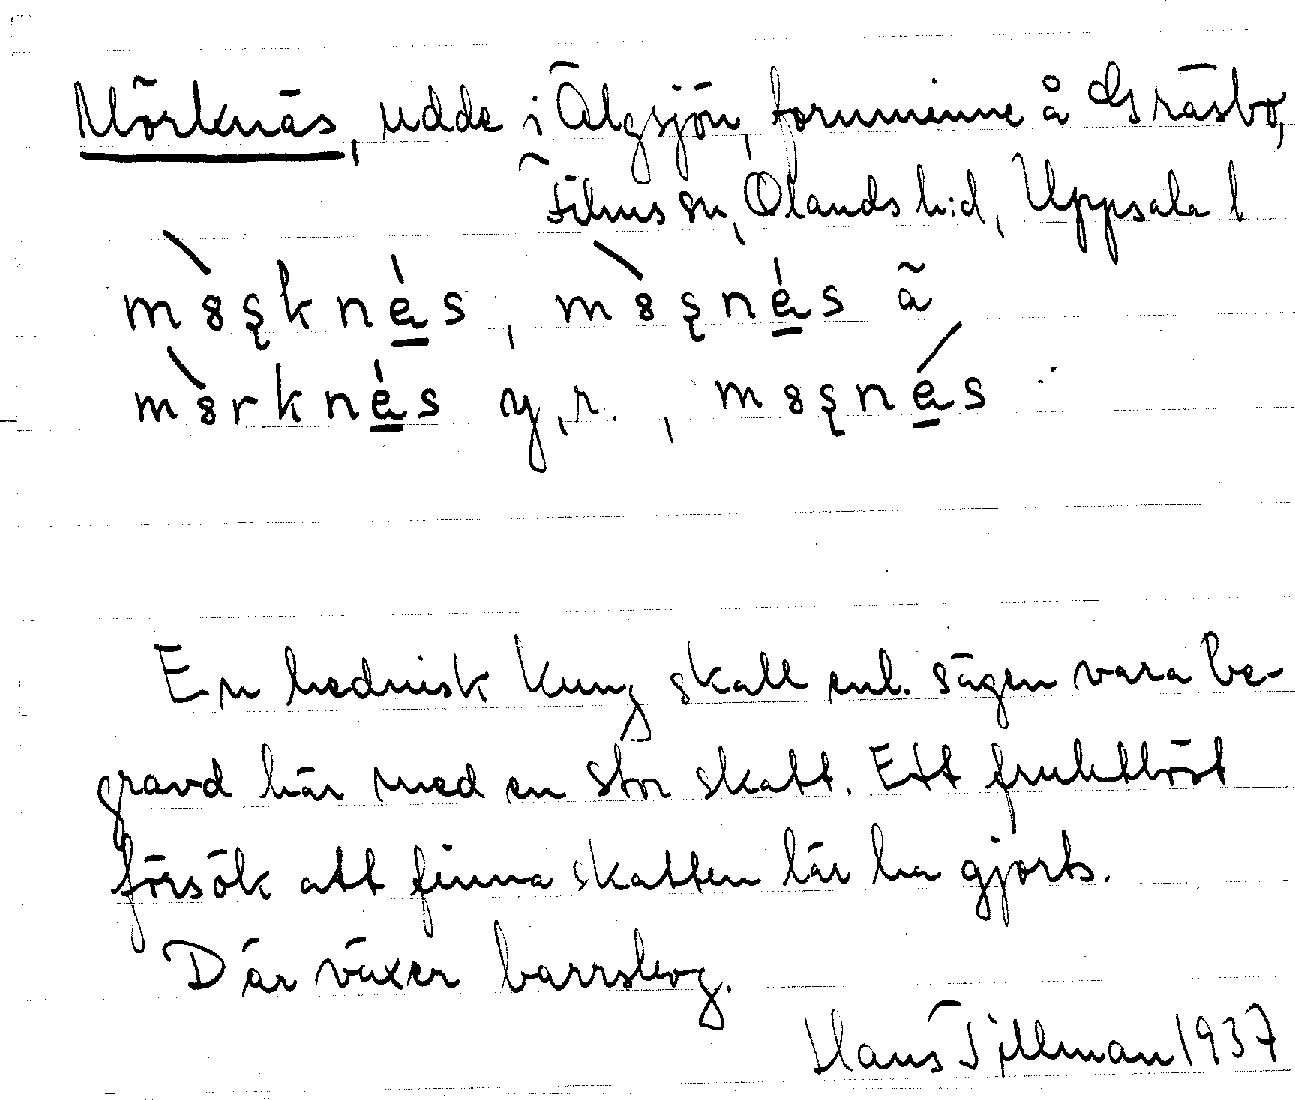 Mörknäs, udde i Älgsjön, fornminne å Gräsbo,
Films sn, Olands h:d, Uppsala l
m`8şk nés, m`8şnés ã
m`8rk nés y,r. , m8şnés
En hednisk kung skall enl. sägen vara be-
gravd här med en stor skatt. Ett fruktlöst
försök att finna skatten lär ha gjorts.
Där växer barrskog.
Hans Tillman 1937